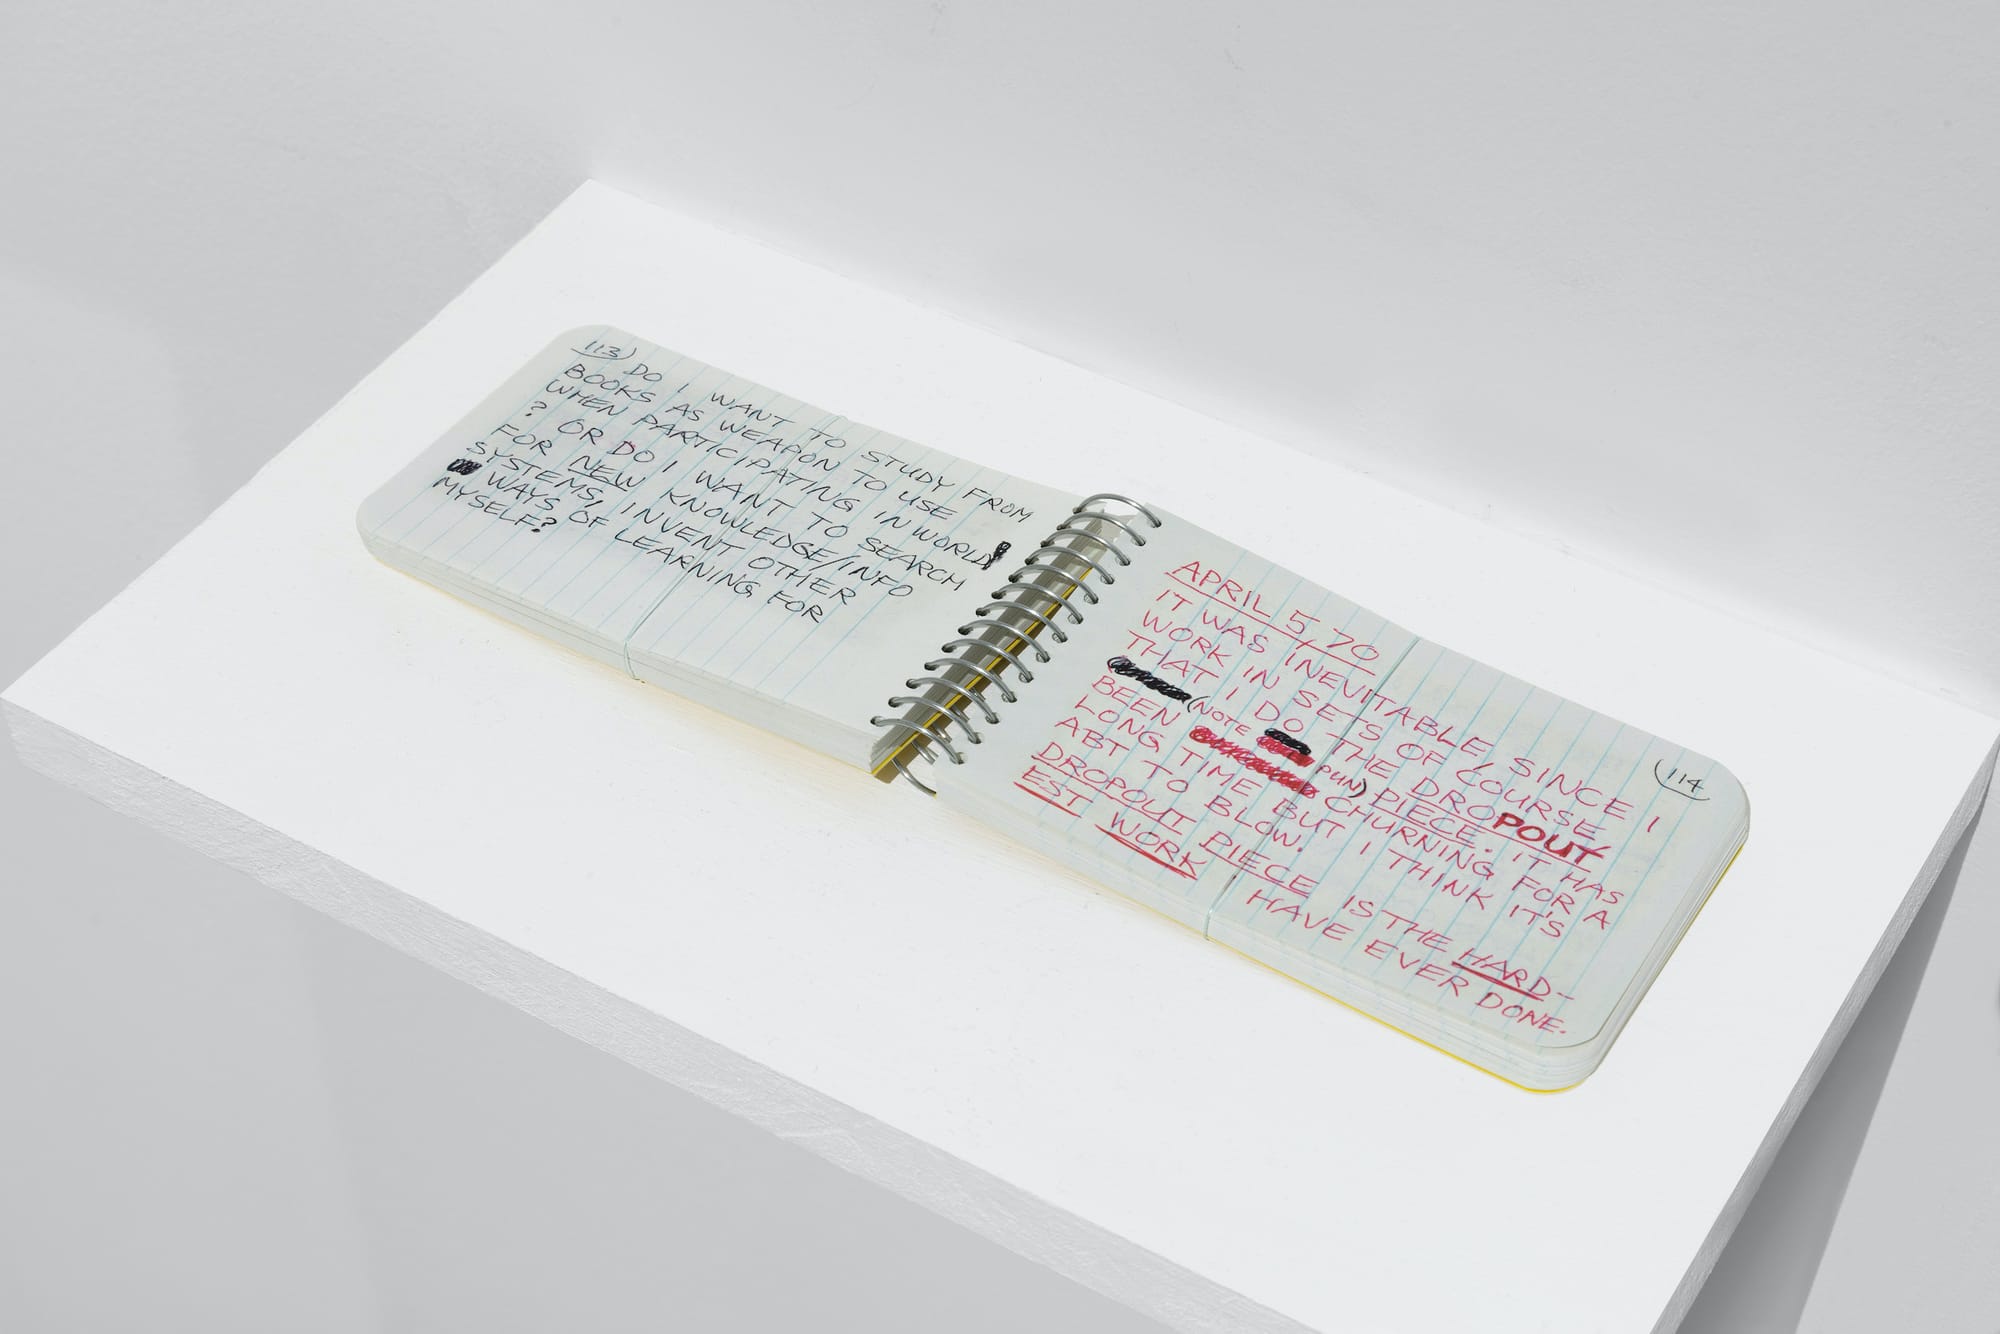 113) DO I WANT TO STUDY FROM
BOOKS AS WEAPON TO USE
WHEN PARTICIPATING IN WORLD
? OR DO I WANT TO SEARCH
FOR NEW KNOWLEDGE/INFO
SYSTEMS, INVENT OTHER
WAYS OF LEARNING FOR
MYSELF?
114
APRIL 5, 70
IT WAS INEVITABLE, SINCE I
WORK IN SETS OF COURSE,
THAT I DO THE DROPOUT
(NOTE PUN) PIECE. IT HAS
BEEN CHURNING FOR A
LONG TIME BUT I THINK IT'S
ABT TO BLOW.
DROPOUT PIECE IS THE HARD-
EST WORK HAVE EVER DONE.